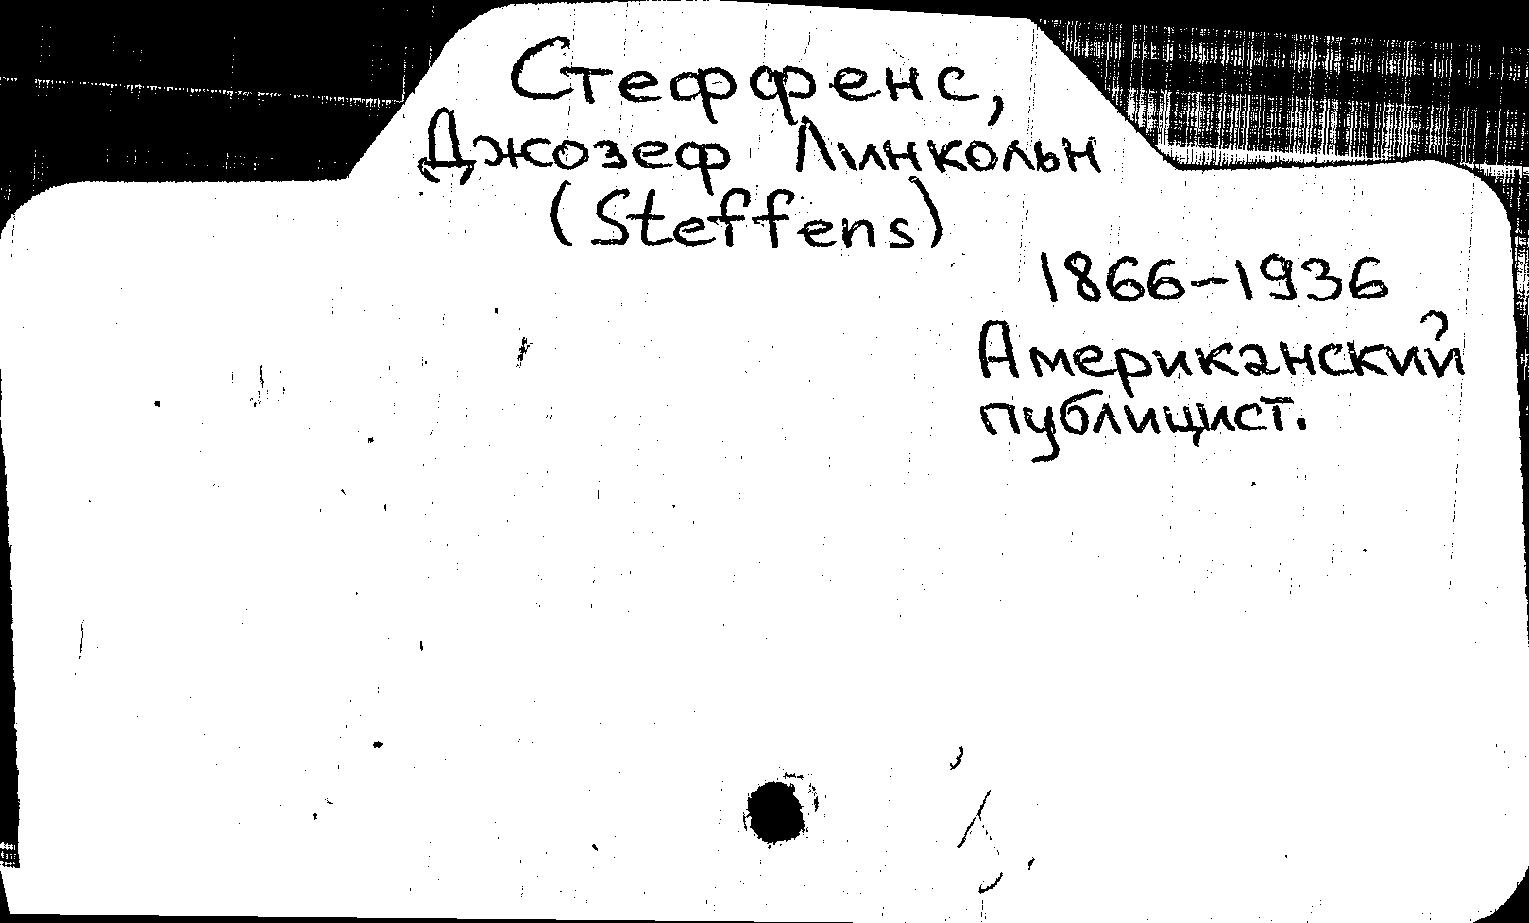 Стеффенс,
Джозеф Линкольн
(Steffens)
1866-1936
Американский
публицист.